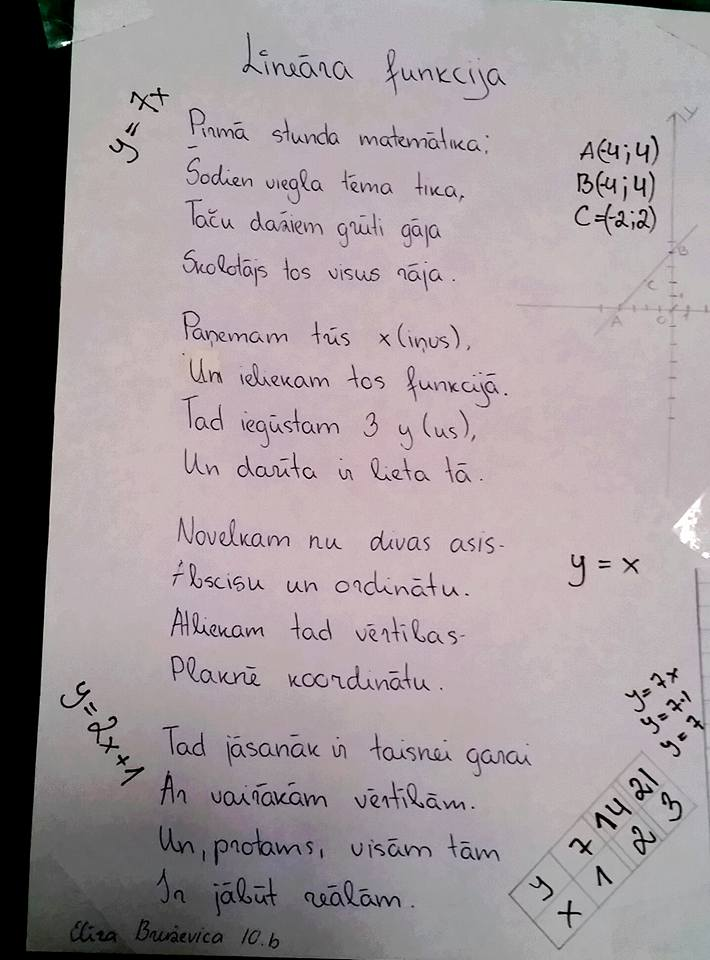 Lineāra funkcija
y = 7x
Pirmā stunda matemātika;
Šodien viegla tēma tika,
Taču dažiem grūti gāja
Skolotājs tos visus rāja.
A(-4;4)
B(-4;4)
C=(-2;2)
y
B
C
A
0
1
1
Paņemam trīs x(iņus),
Un ieliekam tos funkcijā.
Tad iegūstam 3 y(us),
Un darīta ir lieta tā.
Novelkam nu divas asis-
Abscisu un ordinātu.
Atliekam tad vērtības-
Plaknē koordinātu.
y = x
y=2x+1
Tad jāsanāk ir taisnei garai
Ar vairākām vērtībām.
Un, protams, visām tām
Ir jābūt reālām.
y=7x
y=7·1
y=7
y 7 14 21
x 1 2 3
Elīza Bruževica 10.b